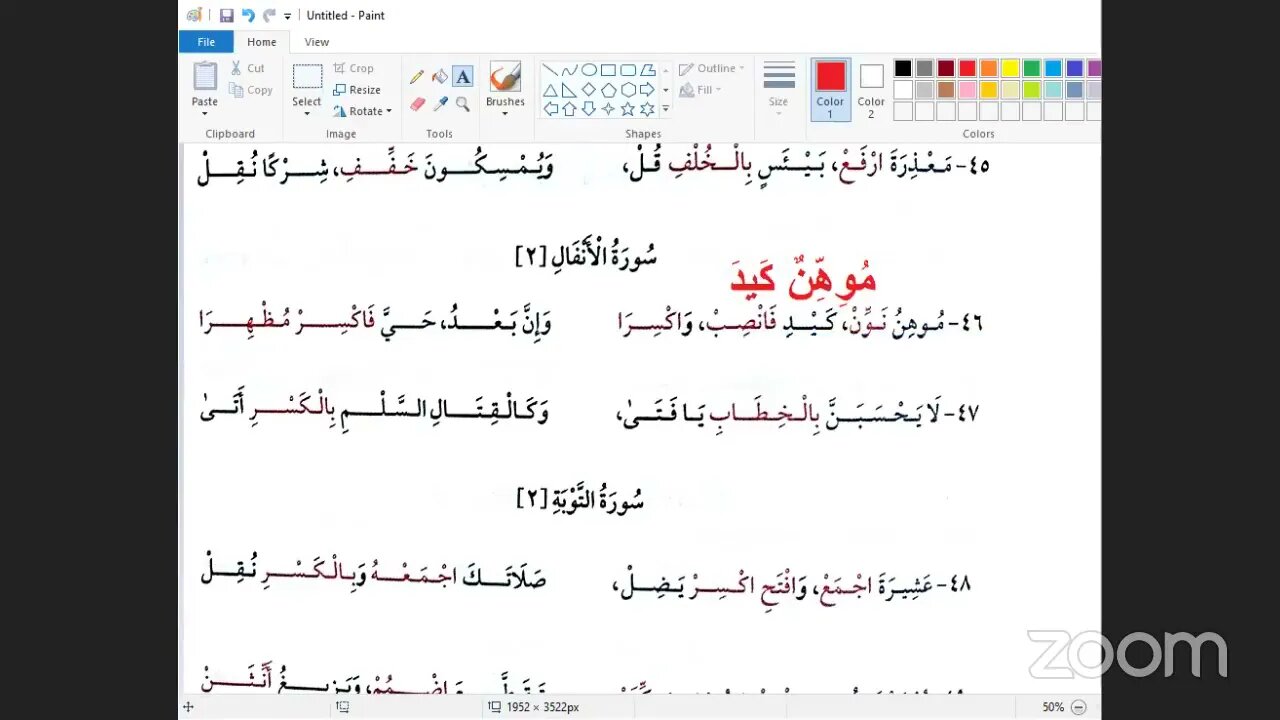 Untitled - Paint
File Home View
Cut Crop Outline
Copy Resize Fill
Paste Select Rotate Brushes Size Color 1 Color 2
Clipboard Image Tools Shapes Colors
٤٥- مَعْذِرَةَ ارْفَعْ، بَيْئَسٍ بِالْخُلْفِ قُلْ، وَيُمْسِكُونَ خَفِّفِ، شِرْكًا نُقِلْ
سُورَةُ الْأَنْفَالِ [٢]
مُوهِّنٌ كَيدَ
٤٦- مُوهِنُ نَوِّنْ، كَيْدِ فَانْصِبْ، وَاكْسِرَا وَإِنَّ بَعْدُ، حَيَّ فَاكْسِرْ مُظْهِرَا
٤٧- لَا يَحْسَبَنَّ بِالْخِطَابِ يَا فَتَىٰ، وَكَالْقِتَالِ السَّلْمِ بِالْكَسْرِ أَتَىٰ
سُورَةُ التَّوْبَةِ [٢]
٤٨- عَشِيرَةَ اجْمَعْ، وَافْتَحِ اكْسِرْ يَضِلْ، صَلَاتَكَ اجْمَعْهُ وَبِالْكَسْرِ نُقِلْ
وَاضْمُمْ، وَيَزِيغُ أَنَّثَنْ
zoom
1952 × 3522px 50%